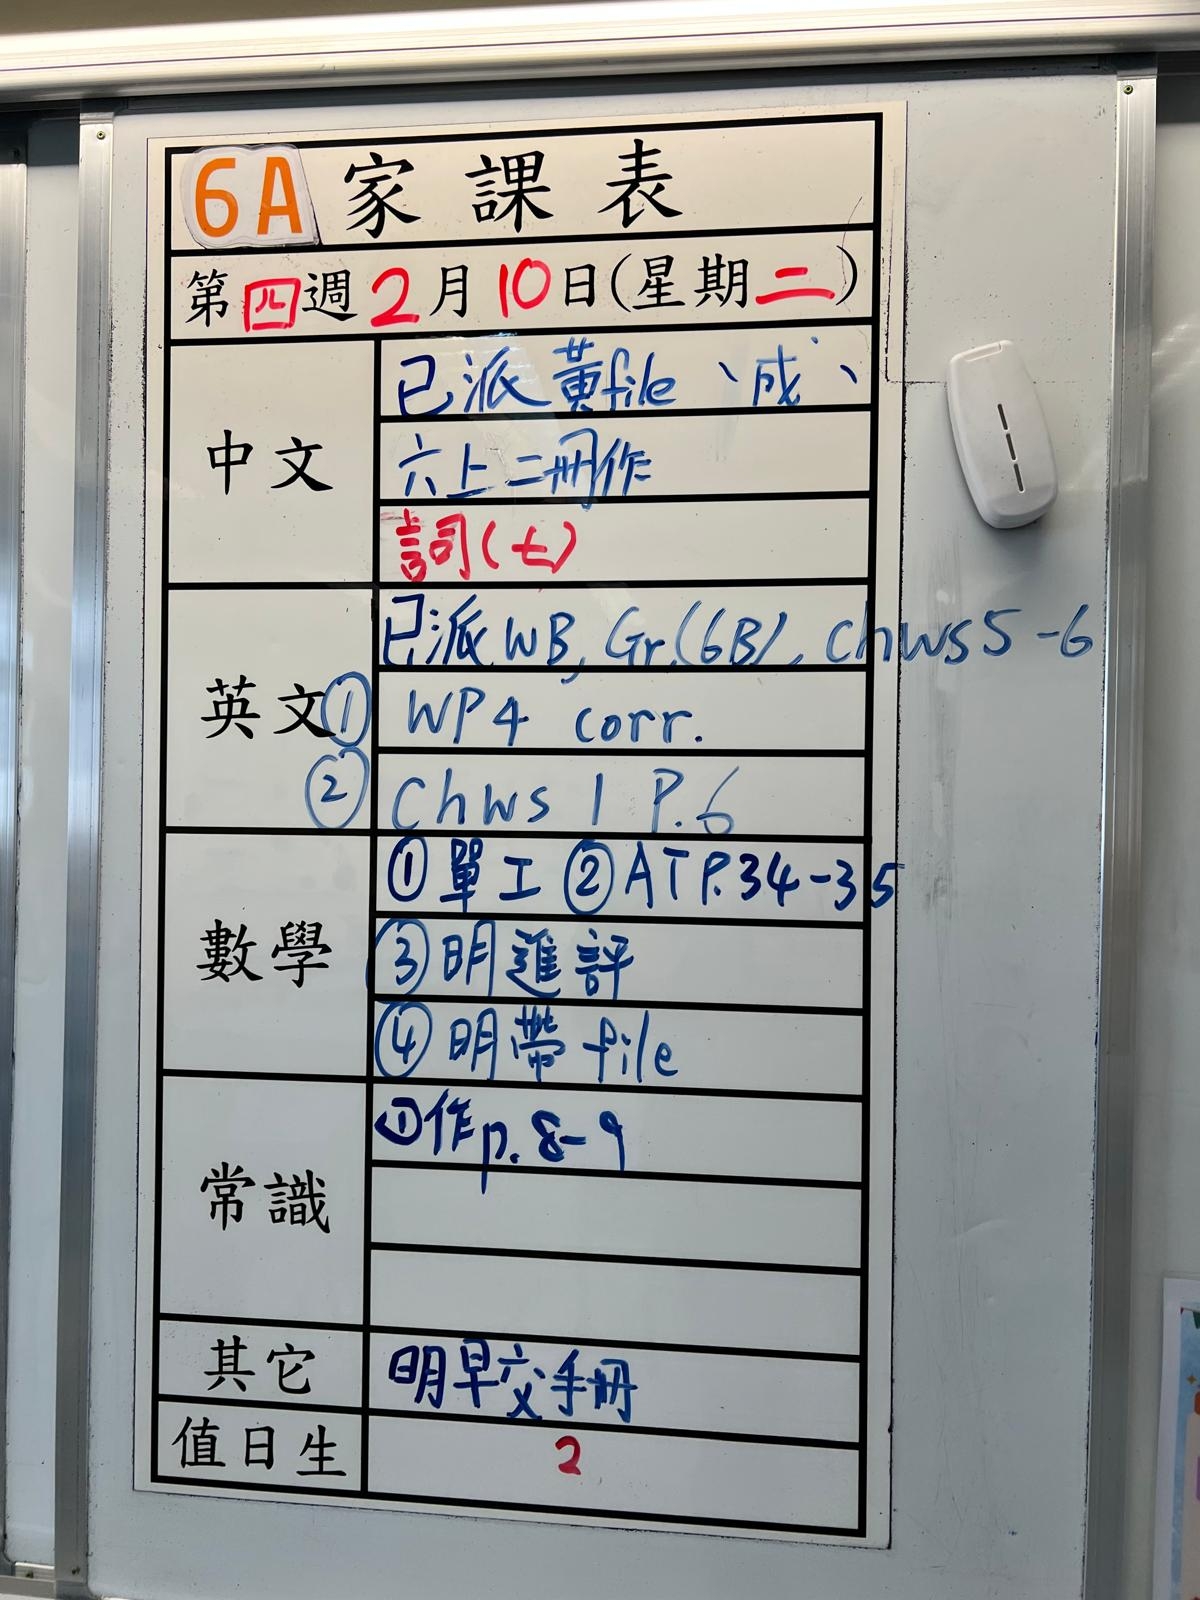 6A 家課表
第四週2月10日(星期二)
中文
已派黃file、成、
六上二冊作
詞(七)
英文
已派WB, Gr.(6B), chws5-6
① WP4 corr.
② chws 1 P.6
數學
①單工 ②AT P.34-35
③明進評
④明帶file
常識
①作p.8-9
其它
明早交手冊
值日生
2